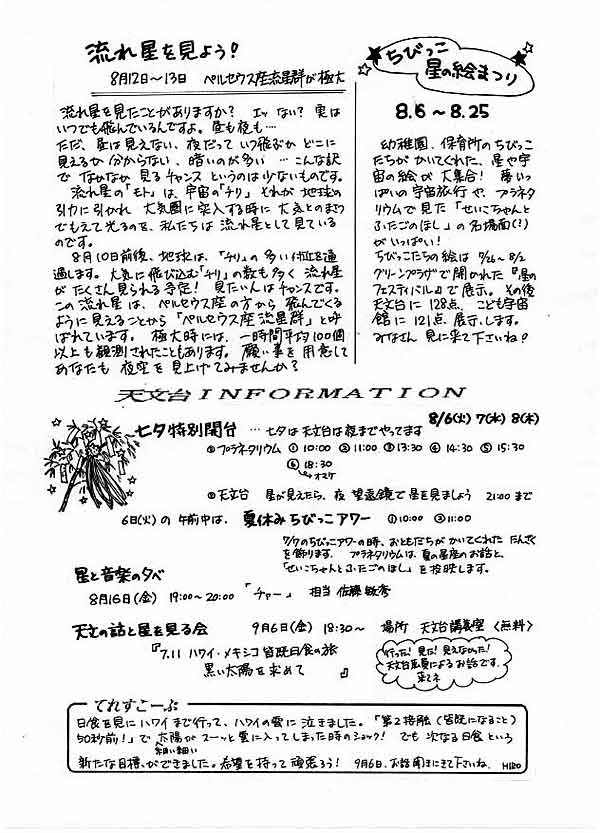 流れ星を見よう!
8月12日〜13日 ペルセウス座流星群が極大
流れ星を見たことがありますか? エッ ない? 実は
いつでも飛んでいるんですよ。昼も夜も…
ただ、昼は見えない、夜だって いつ飛ぶか どこに
見えるか 分からない、暗いのが多い … こんな訳
で なかなか 見る チャンス というのは少ないものです。
流れ星の「モト」は、宇宙の「チリ」 それが 地球の
引力に引かれ 大気圏に突入する時に 大気とのまさつ
でもえて光るのを、私たちは 流れ星として見ている
のです。
8月10日前後、地球は、「チリ」の 多い付近を通
過します。大気に飛び込む「チリ」の数も多く 流れ星
が たくさん見られる予定! 見たい人は チャンスです。
この流れ星は、ペルセウス座の方から 飛んでくる
ように見えることから「ペルセウス座流星群」と呼
ばれています。 極大時には、一時間平均100個
以上も観測されたこともあります。 願い事を用意して
あなたも 夜空を見上げてみませんか?
ちびっこ
星の絵まつり
8.6〜8.25
幼稚園、保育所のちびっこ
たちが かいてくれた、星や宇
宙の絵が 大集合! 夢いっ
ぱいの宇宙旅行や、プラネタ
リウムで見た「せいこちゃんと
ふたごのほし」の名場面(?)
がいっぱい!
ちびっこたちの絵は 7/26〜8/2
グリーンプラザで開かれた『星の
フェスティバル』で 展示。その後
天文台に 128点、こども宇宙
館に 121点、展示します。
みなさん 見に来て下さいね!
天文台INFORMATION
七夕特別開台 … 七夕は 天文台は夜までやってます
8/6(火) 7(水) 8(木)
①プラネタリウム ①10:00 ②11:00 ③13:30 ④14:30 ⑤15:30
⑥18:30
オマケ
②天文台 星が見えたら、夜 望遠鏡で 星を見ましょう 21:00まで
6日(火)の 午前中は、夏休みちびっこアワー ①10:00 ②11:00
7/7のちびっこアワーの時、おともだちが かいてくれた たんざく
を飾ります。 プラネタリウムは、夏の星座のお話と、
「せいこちゃんとふたごのほし」を投映します。
星と音楽の夕べ
8月16日(金) 19:00〜20:00 「チャー」 担当 佐藤
天文の話と星を見る会 9月6日(金) 18:30〜 場所 天文台講義室 〈無料〉
『7.11 ハワイ・メキシコ皆既日食の旅
黒い太陽を求めて 』
行った! 見た! 見えなかった!
天文台職員によるお話です.
来てネ
てれすこーぷ
日食を見に ハワイまで行って、ハワイの雲に 泣きました。「第2接触(皆既になること)
50秒前!」で 太陽が スーッと 雲に入ってしまった時のショック! でも 次なる日食という
細い細い
新たな目標ができました。希望を持って 頑張ろう! 9月6日、お話聞きにきて下さいね. HIRO